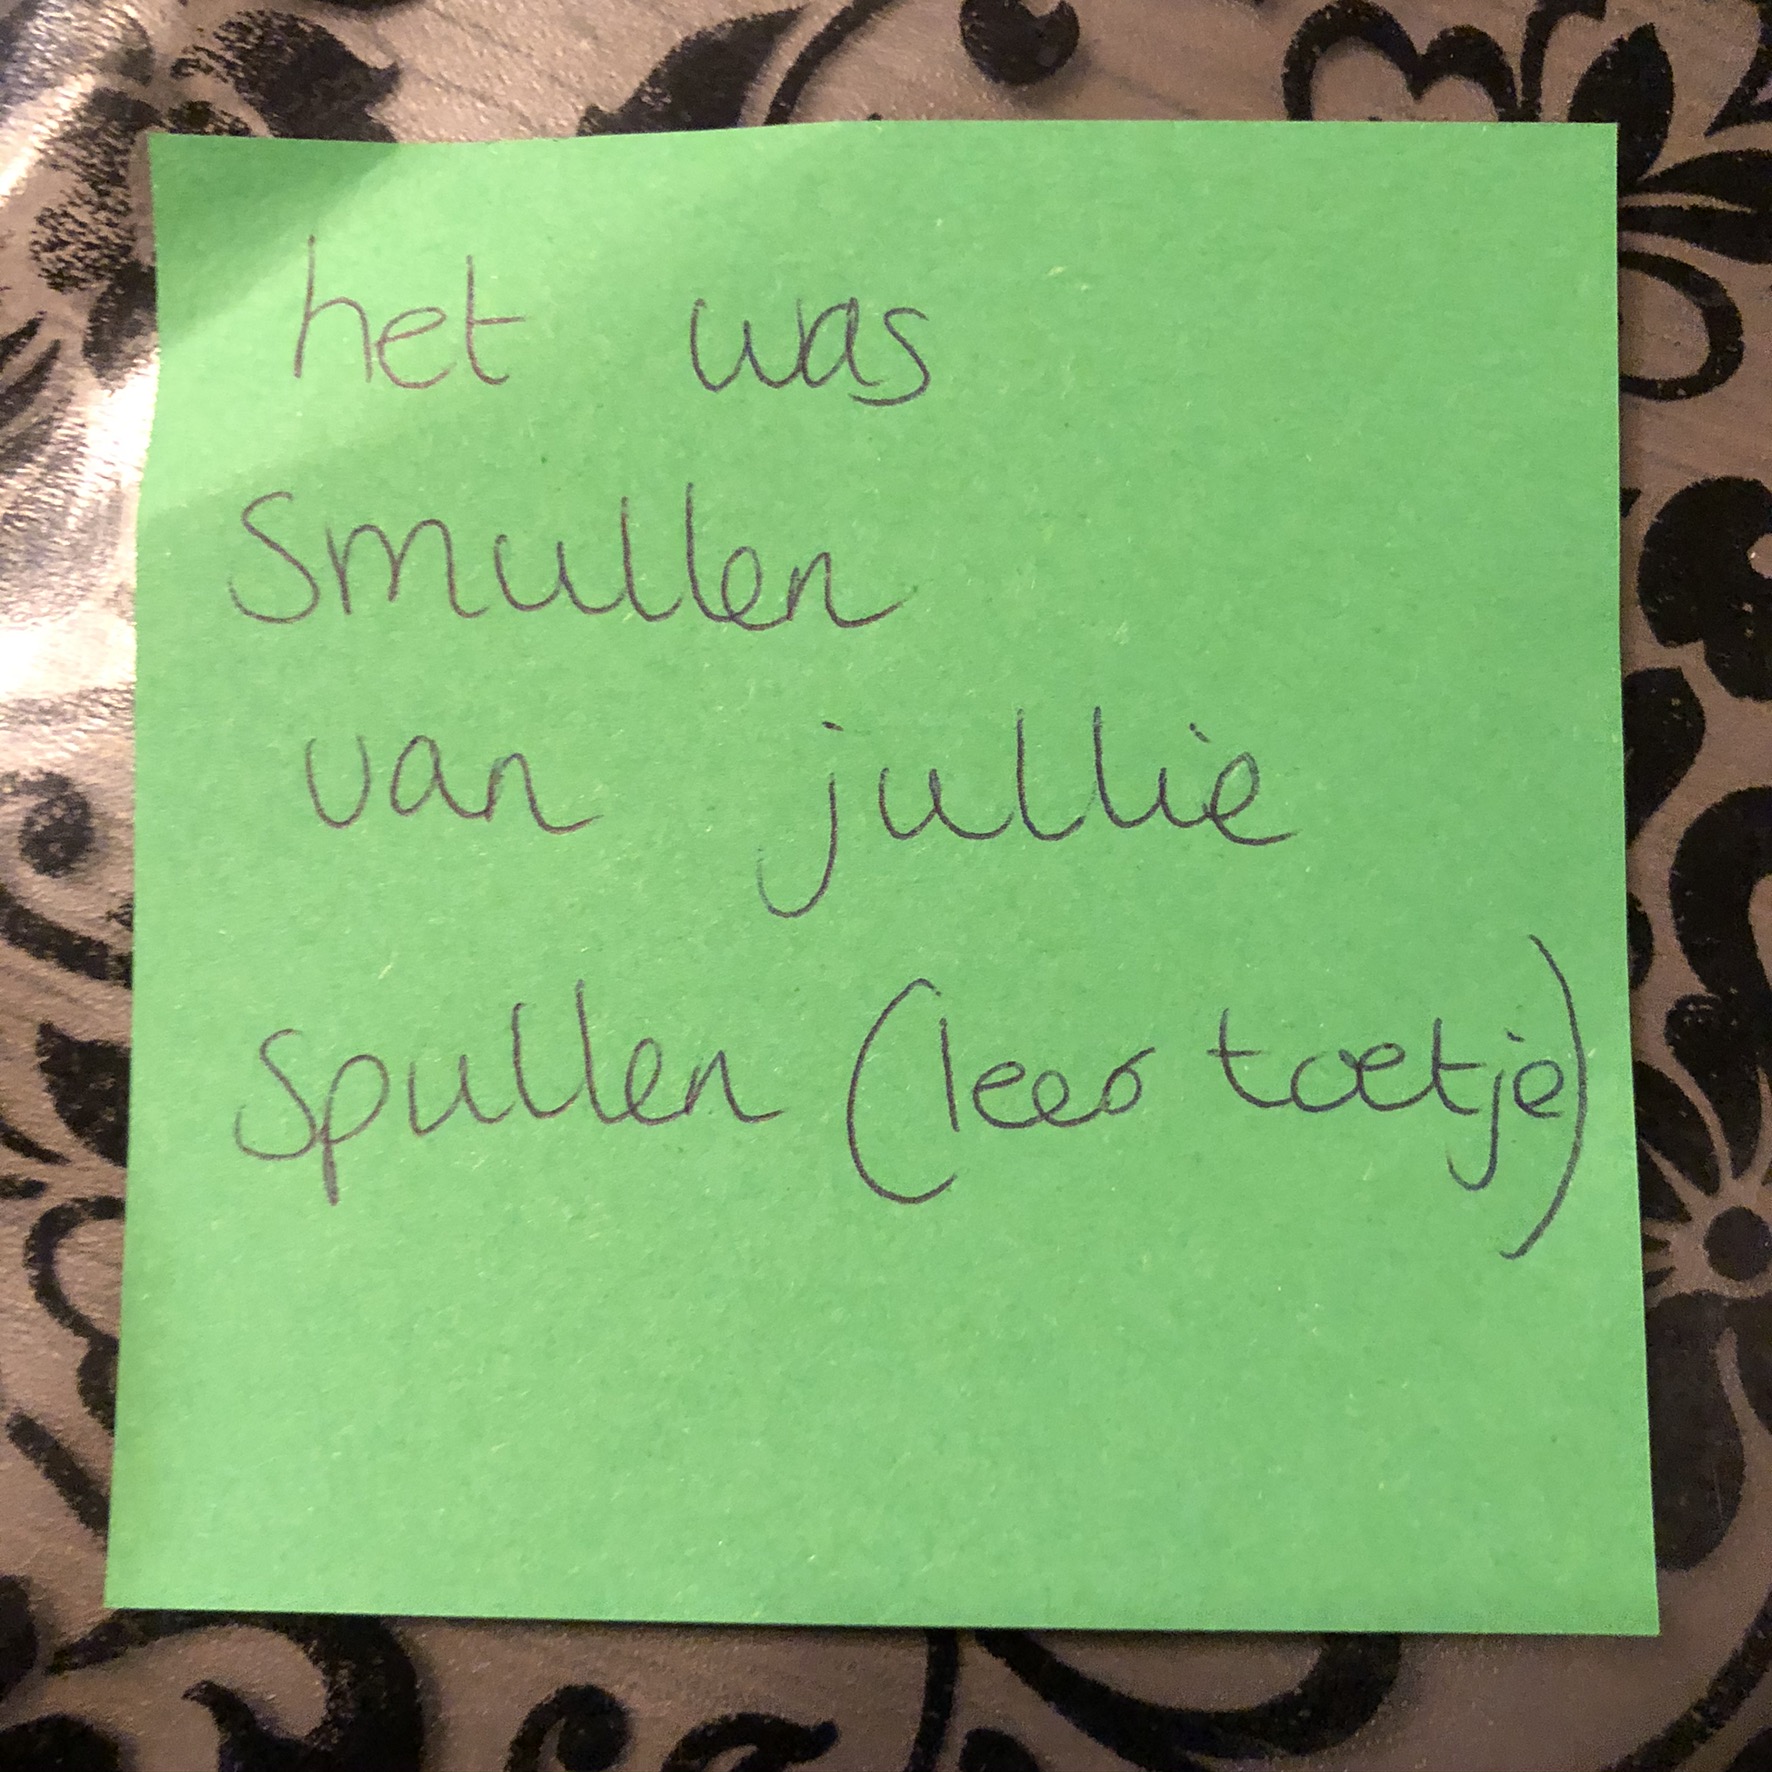 het was
smullen
van jullie
spullen (leer toetje)